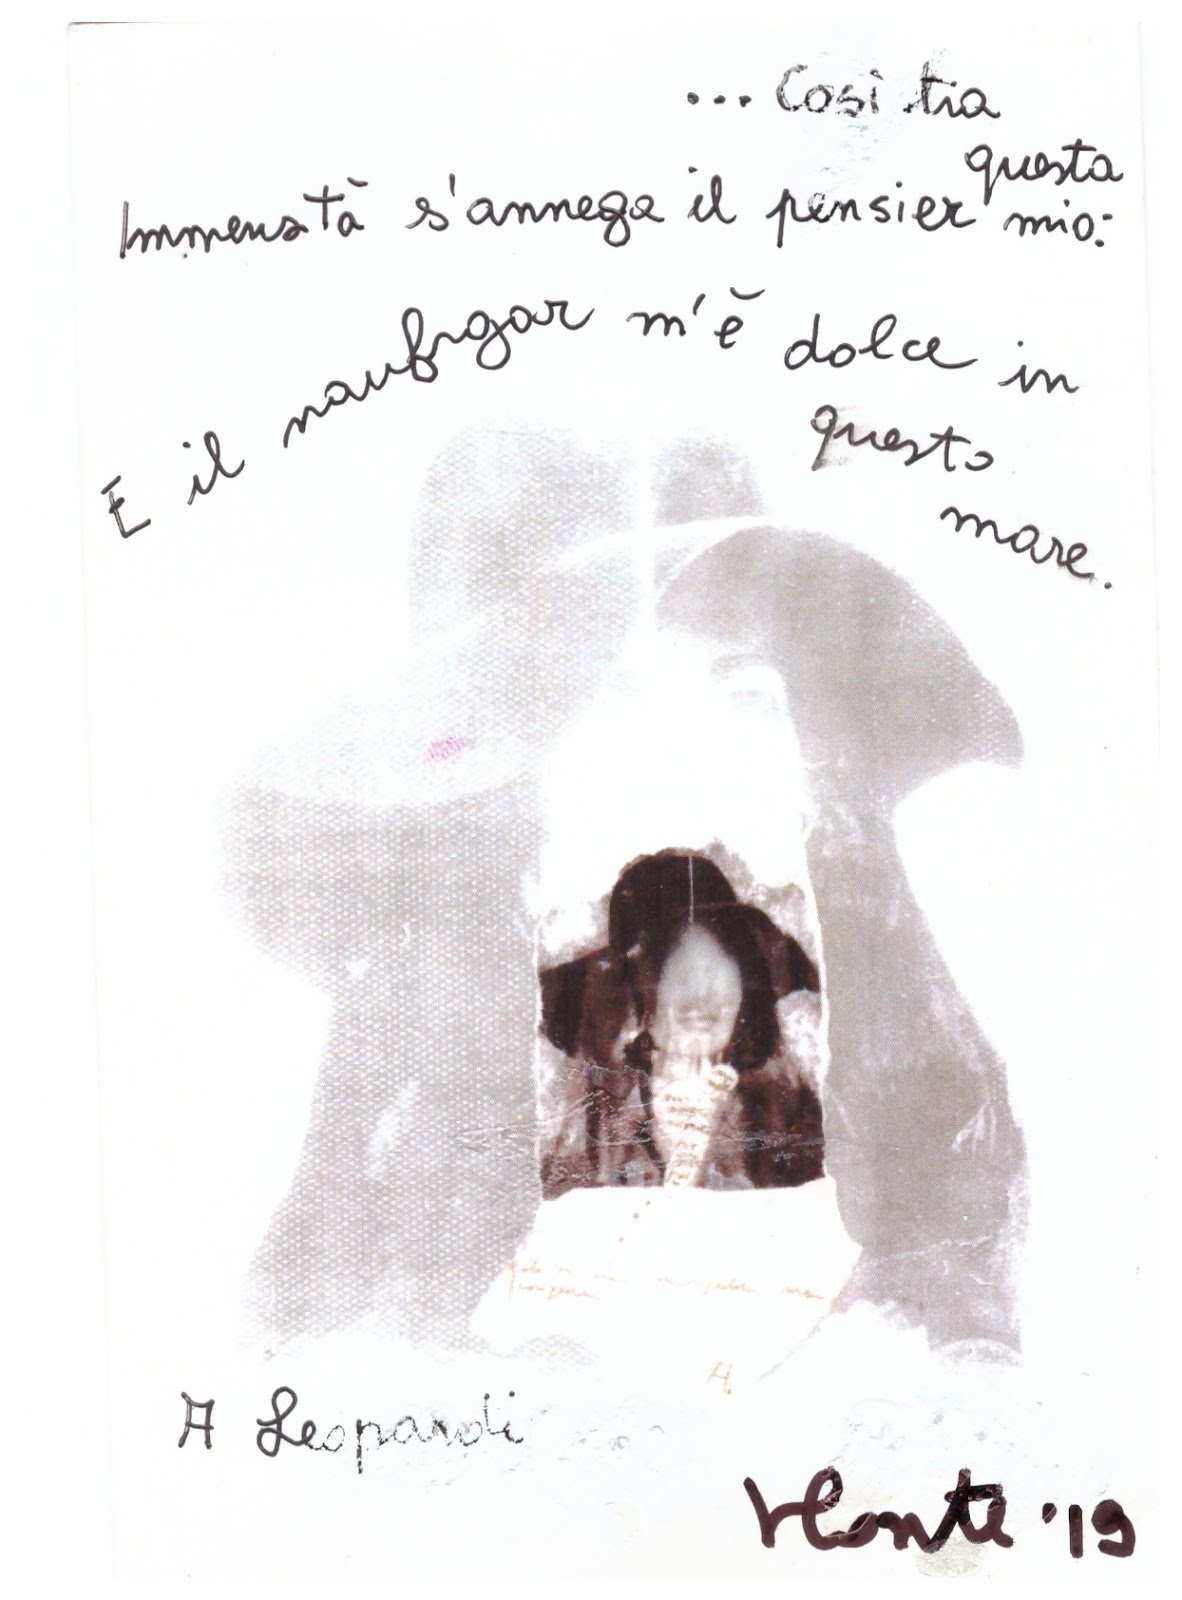 ... Così tra
questa
Immensità s'annega il pensier mio:
E il naufragar m'è dolce in
questo
mare.
A.
A Leopardi
VConte '19